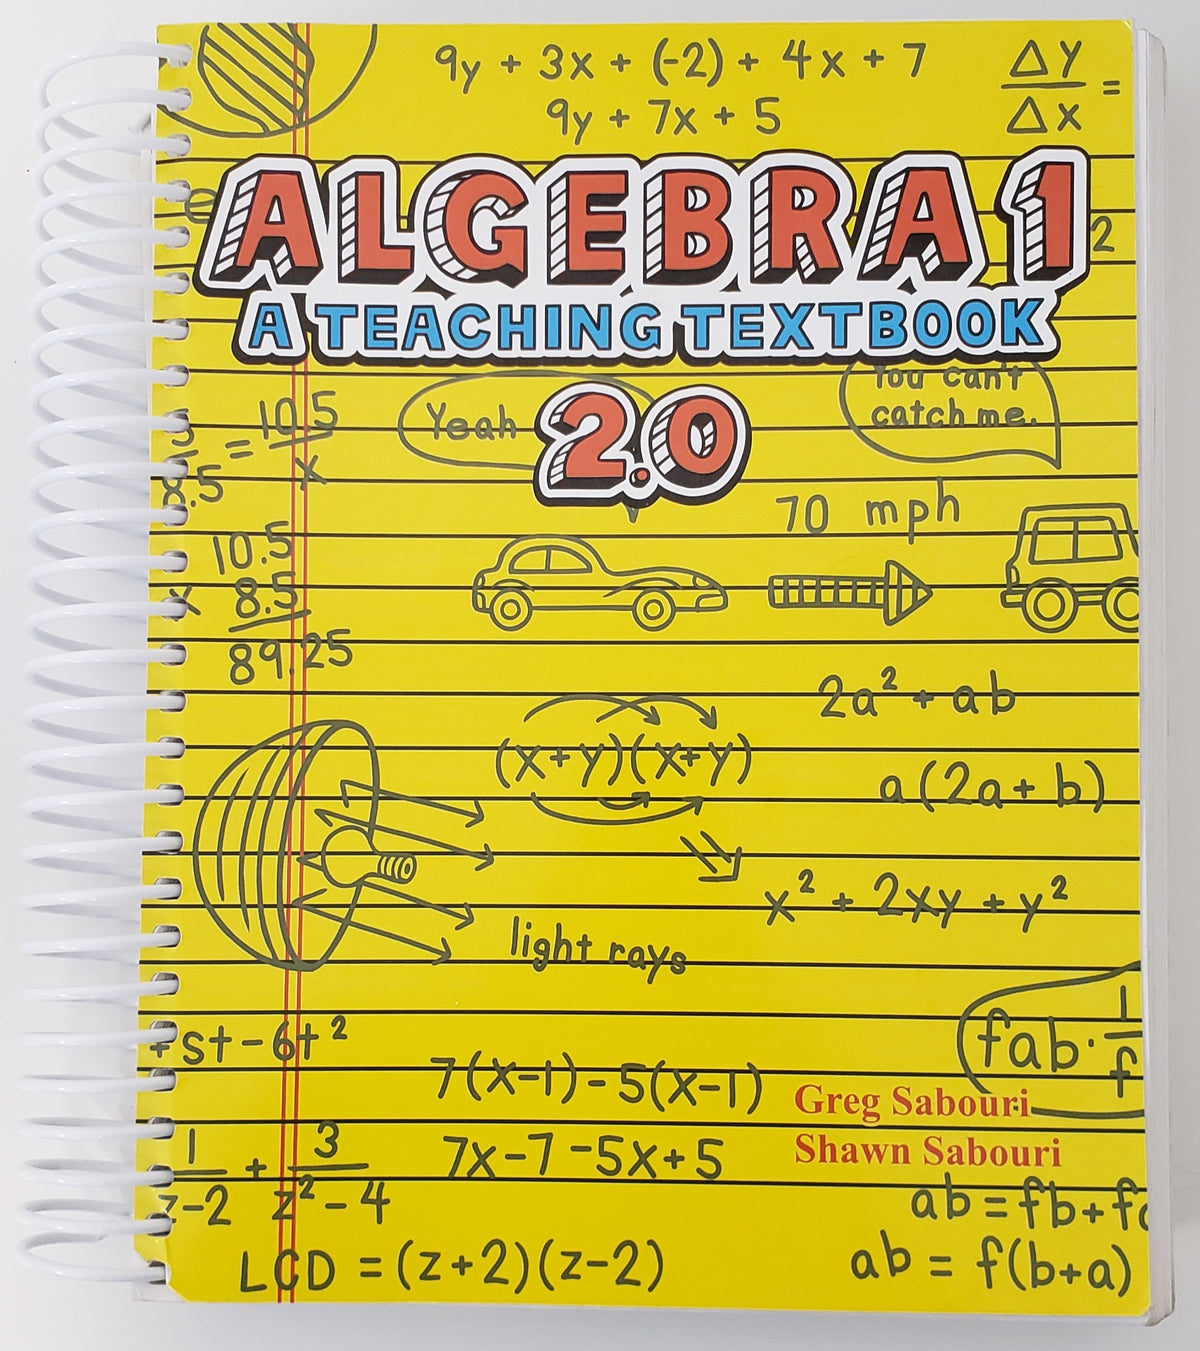 9y + 3x + (-2) + 4x + 7
9y + 7x + 5
Δy
Δx
=
ALGEBRA 1
2
A TEACHING TEXTBOOK
2.0
Yeah
You can't
catch me.
= 10.5
x
.5
70 mph
10.5
x 8.5
89.25
2a² + ab
(x+y)(x+y)
a(2a+b)
x² + 2xy + y²
light rays
+st-6t²
fab · 1
f
7(x-1)-5(x-1)
Greg Sabouri
Shawn Sabouri
1 + 3
z-2 z²-4
7x-7-5x+5
ab = fb+f
LCD = (z+2)(z-2)
ab = f(b+a)